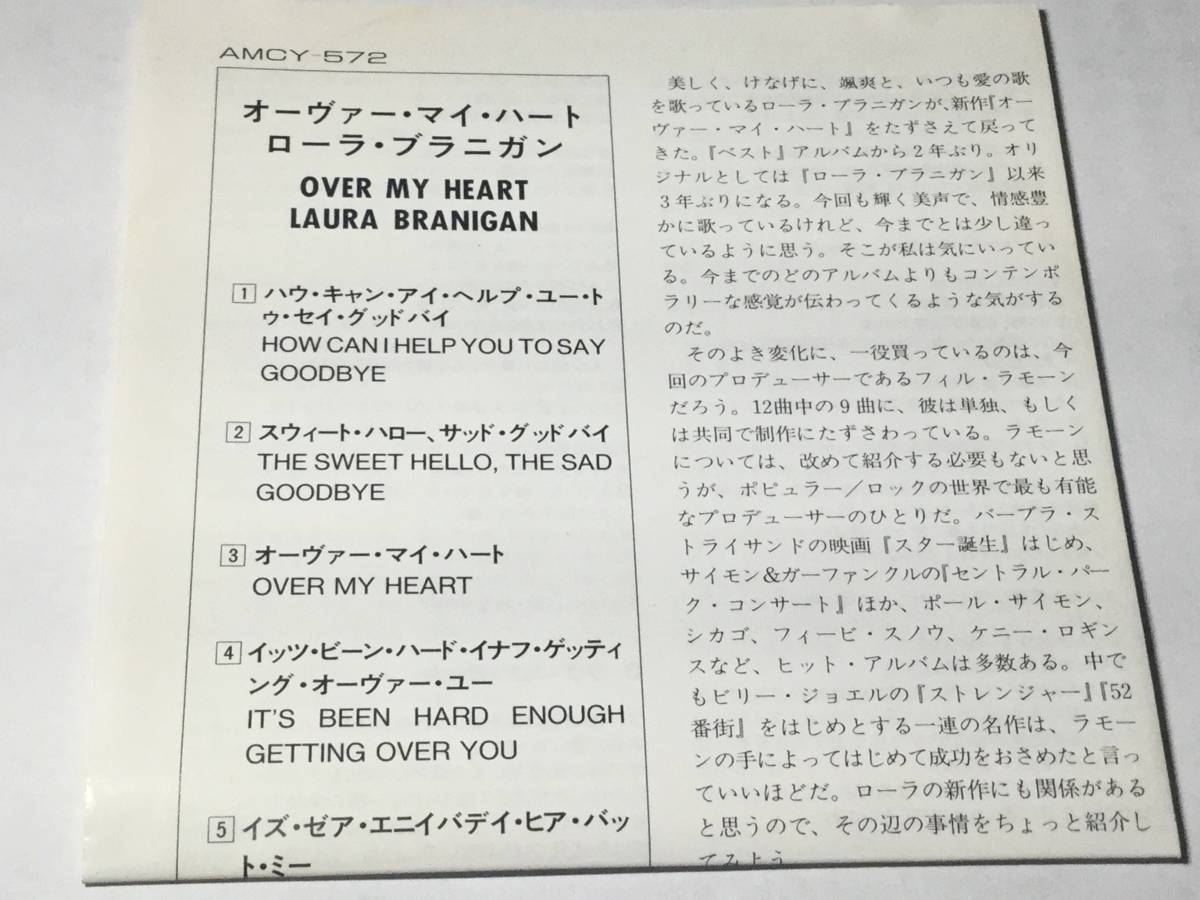 AMCY-572
オーヴァー・マイ・ハート
ローラ・ブラニガン
OVER MY HEART
LAURA BRANIGAN
1 ハウ・キャン・アイ・ヘルプ・ユー・ト
ゥ・セイ・グッドバイ
HOW CAN I HELP YOU TO SAY
GOODBYE
2 スウィート・ハロー、サッド・グッドバイ
THE SWEET HELLO, THE SAD
GOODBYE
3 オーヴァー・マイ・ハート
OVER MY HEART
4 イッツ・ビーン・ハード・イナフ・ゲッティ
ング・オーヴァー・ユー
IT'S BEEN HARD ENOUGH
GETTING OVER YOU
5 イズ・ゼア・エニイバデイ・ヒア・バッ
ト・ミー
美しく、けなげに、颯爽と、いつも愛の歌
を歌っているローラ・ブラニガンが、新作『オー
ヴァー・マイ・ハート』をたずさえて戻って
きた。『ベスト』アルバムから2年ぶり。オリ
ジナルとしては『ローラ・ブラニガン』以来
3年ぶりになる。今回も輝く美声で、情感豊
かに歌っているけれど、今までとは少し違っ
ているように思う。そこが私は気にいってい
る。今までのどのアルバムよりもコンテンポ
ラリーな感覚が伝わってくるような気がする
のだ。
そのよき変化に、一役買っているのは、今
回のプロデューサーであるフィル・ラモーン
だろう。12曲中の9曲に、彼は単独、もしく
は共同で制作にたずさわっている。ラモーン
については、改めて紹介する必要もないと思
うが、ポピュラー／ロックの世界で最も有能
なプロデューサーのひとりだ。バーブラ・ス
トライサンドの映画『スター誕生』はじめ、
サイモン&ガーファンクルの『セントラル・パー
ク・コンサート』ほか、ポール・サイモン、
シカゴ、フィービ・スノウ、ケニー・ロギン
スなど、ヒット・アルバムは多数ある。中で
もビリー・ジョエルの『ストレンジャー』『52
番街』をはじめとする一連の名作は、ラモー
ンの手によってはじめて成功をおさめたと言っ
ていいほどだ。ローラの新作にも関係がある
と思うので、その辺の事情をちょっと紹介し
てみよう